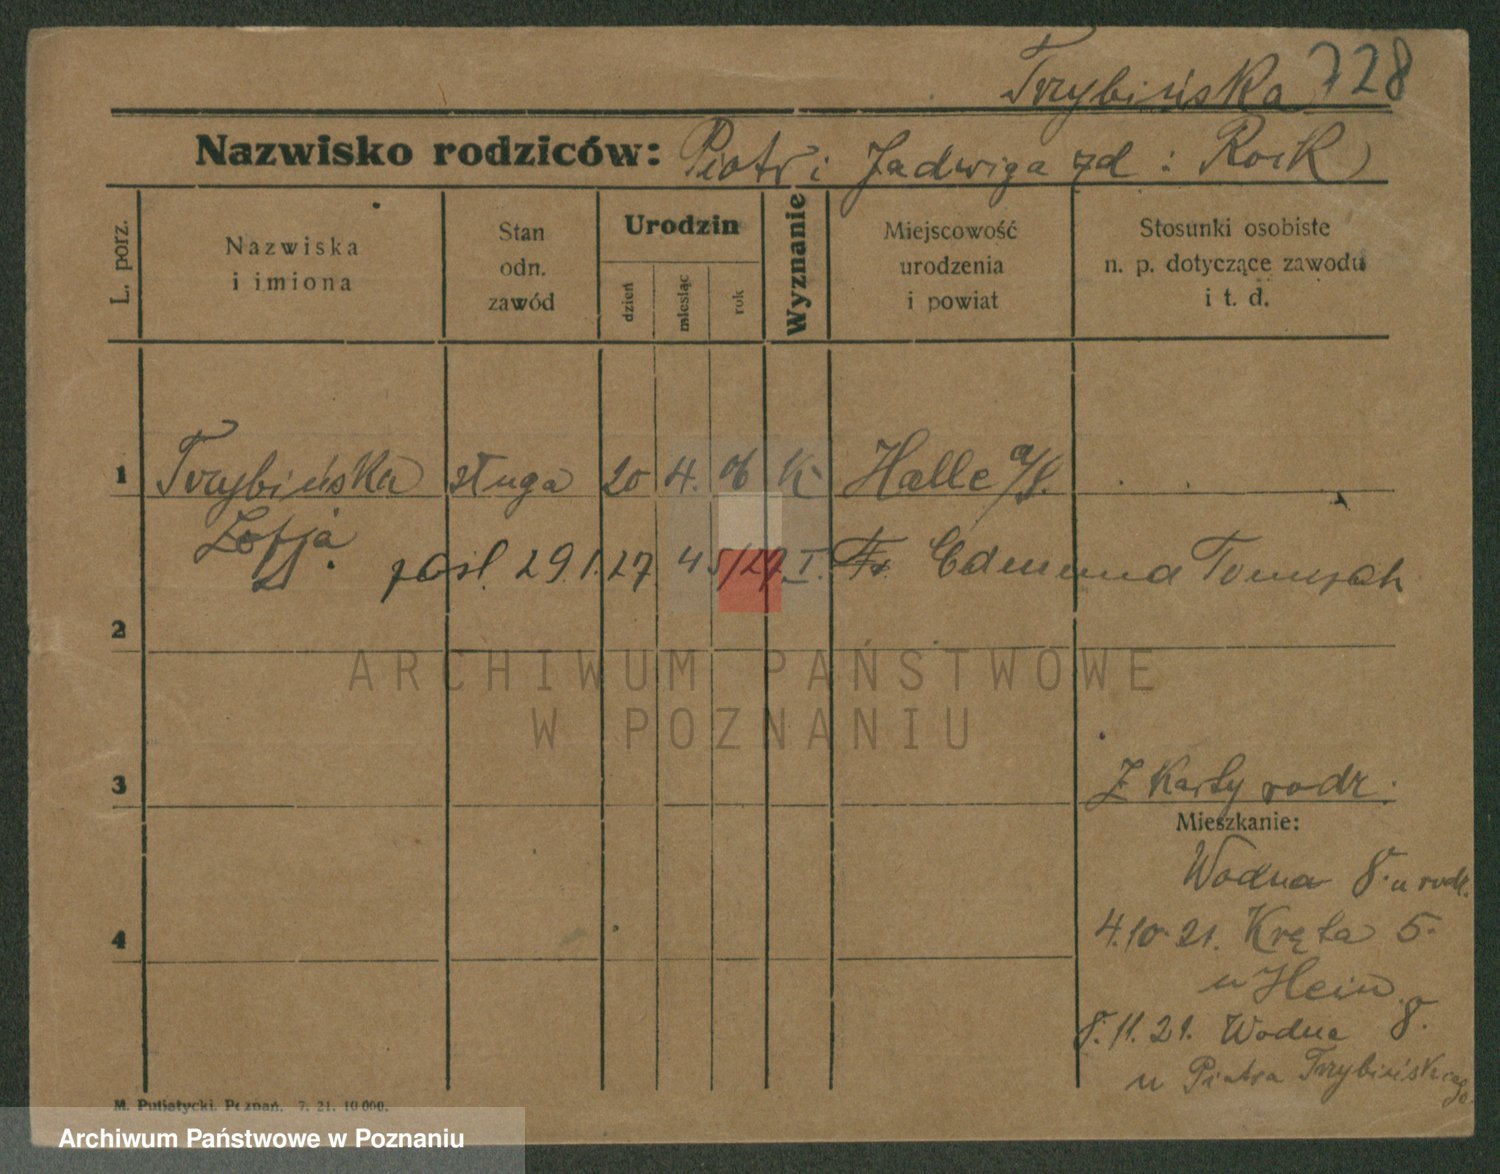 Trzybińska 728
Nazwisko rodziców: Piotr i Jadwiga zd: Rock
L. porz.
Nazwiska i imiona
Stan odn. zawód
Urodzin
dzień
miesiąc
rok
Wyznanie
Miejscowość urodzenia i powiat
Stosunki osobiste n. p. dotyczące zawodu i t. d.
1 Trzybińska sługa 20 4. 06 K Halle a/S.
Zofja
pośl. 29.1.27 45/27 I. Fr. Edmund
2
ARCHIWUM PAŃSTWOWE
W POZNANIU
3 Z Karty rodz.
Mieszkanie:
Wodna 8. u rodz.
4 4.10.21. Kręta 5.
u Hein
8.11.21. Wodna 8.
u Piotra Trzybińskiego
M. Putiatycki, Poznań. 7. 21. 10 000.
Archiwum Państwowe w Poznaniu